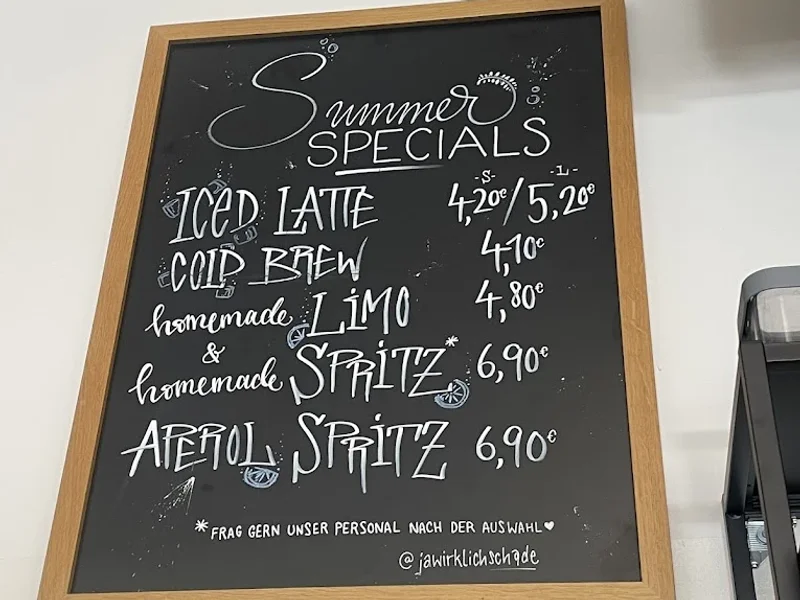 Summer
SPECIALS
-S- -L-
ICED LATTE 4,20€/5,20€
COLD BREW 4,10€
homemade LIMO 4,80€
&
homemade SPRITZ* 6,90€
APEROL SPRITZ 6,90€
*FRAG GERN UNSER PERSONAL NACH DER AUSWAHL♥
@jawirklichschade